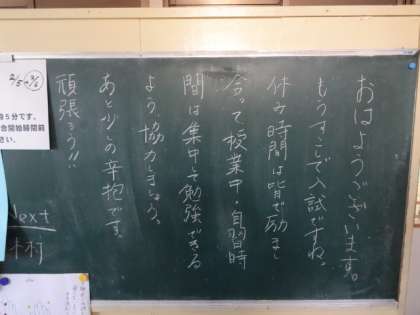 おはようございます。
もうすこしで入試ですね。
休み時間は皆で励まし
合って授業中・自習時
間は集中して勉強できる
よう協力しましょう。
あと少しの辛抱です。
頑張ろう!!
2/5
5分です。
合開始時間前
さい。
Next
木村